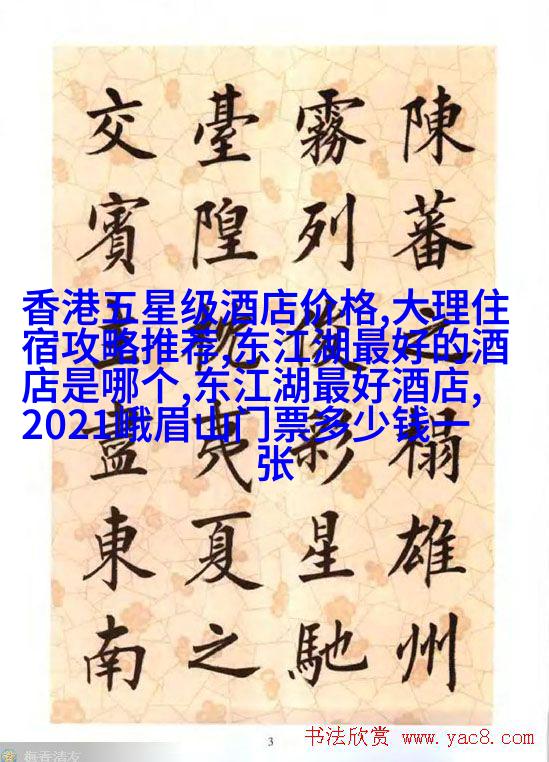 陳蕃之榻雄州
霧列俊彩星馳
臺隍枕夷夏之
交賓主盡東南
香港五星级酒店价格,大理住
宿攻略推荐,东江湖最好的酒
店是哪个,东江湖最好酒店,
2021峨眉山门票多少钱一
张
3
书法欣赏 www.yac8.com
梅香清友